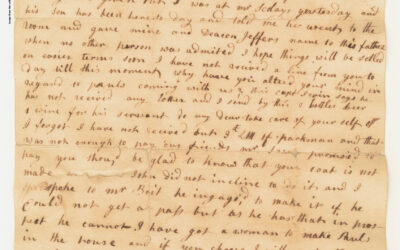 but I was at mr Scolays yesterday and
his son has been honest day and told me he went to the
room and gave mine and Deacon Jeffers name to his father
when no other parson was admitted I hope things will be settled
on easier terms soon I have not recived a line from you to
day till this moment why have you alterd your mind in
regard to pauls coming with us & this capt Irvin says he
has not recived any Letter and I send by this 2 bottles beer
1 wine for his servant do my dear take care of your self off
I forgot I have not received but 3 £ LM of parkman and that
was not enough to pay our friends mr promised to
pay you shou'd be glad to know that your coat is not
made John did not incline to do it and I
spoke to mr Boit he ingag'd to make it if he
could not get a pass but as he has that in pros
pect he cannot I have got a woman to make pauls
in the house and if you